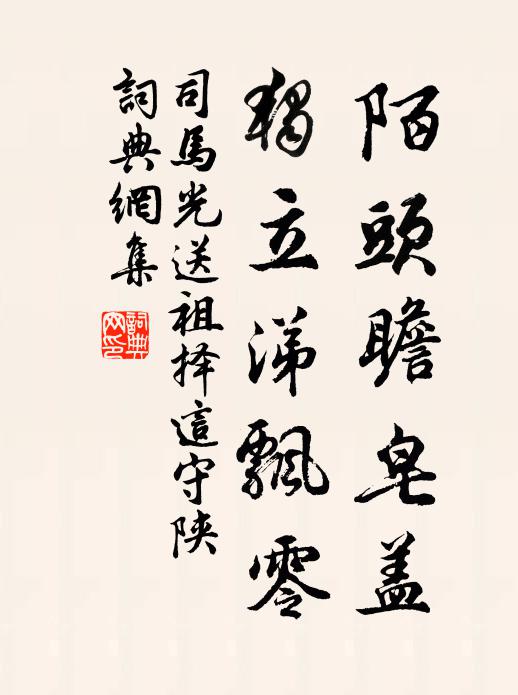 陌頭瞻皂盖
獨立涕飄零
司馬光送祖择這守陕
詞典網集
詞典网印